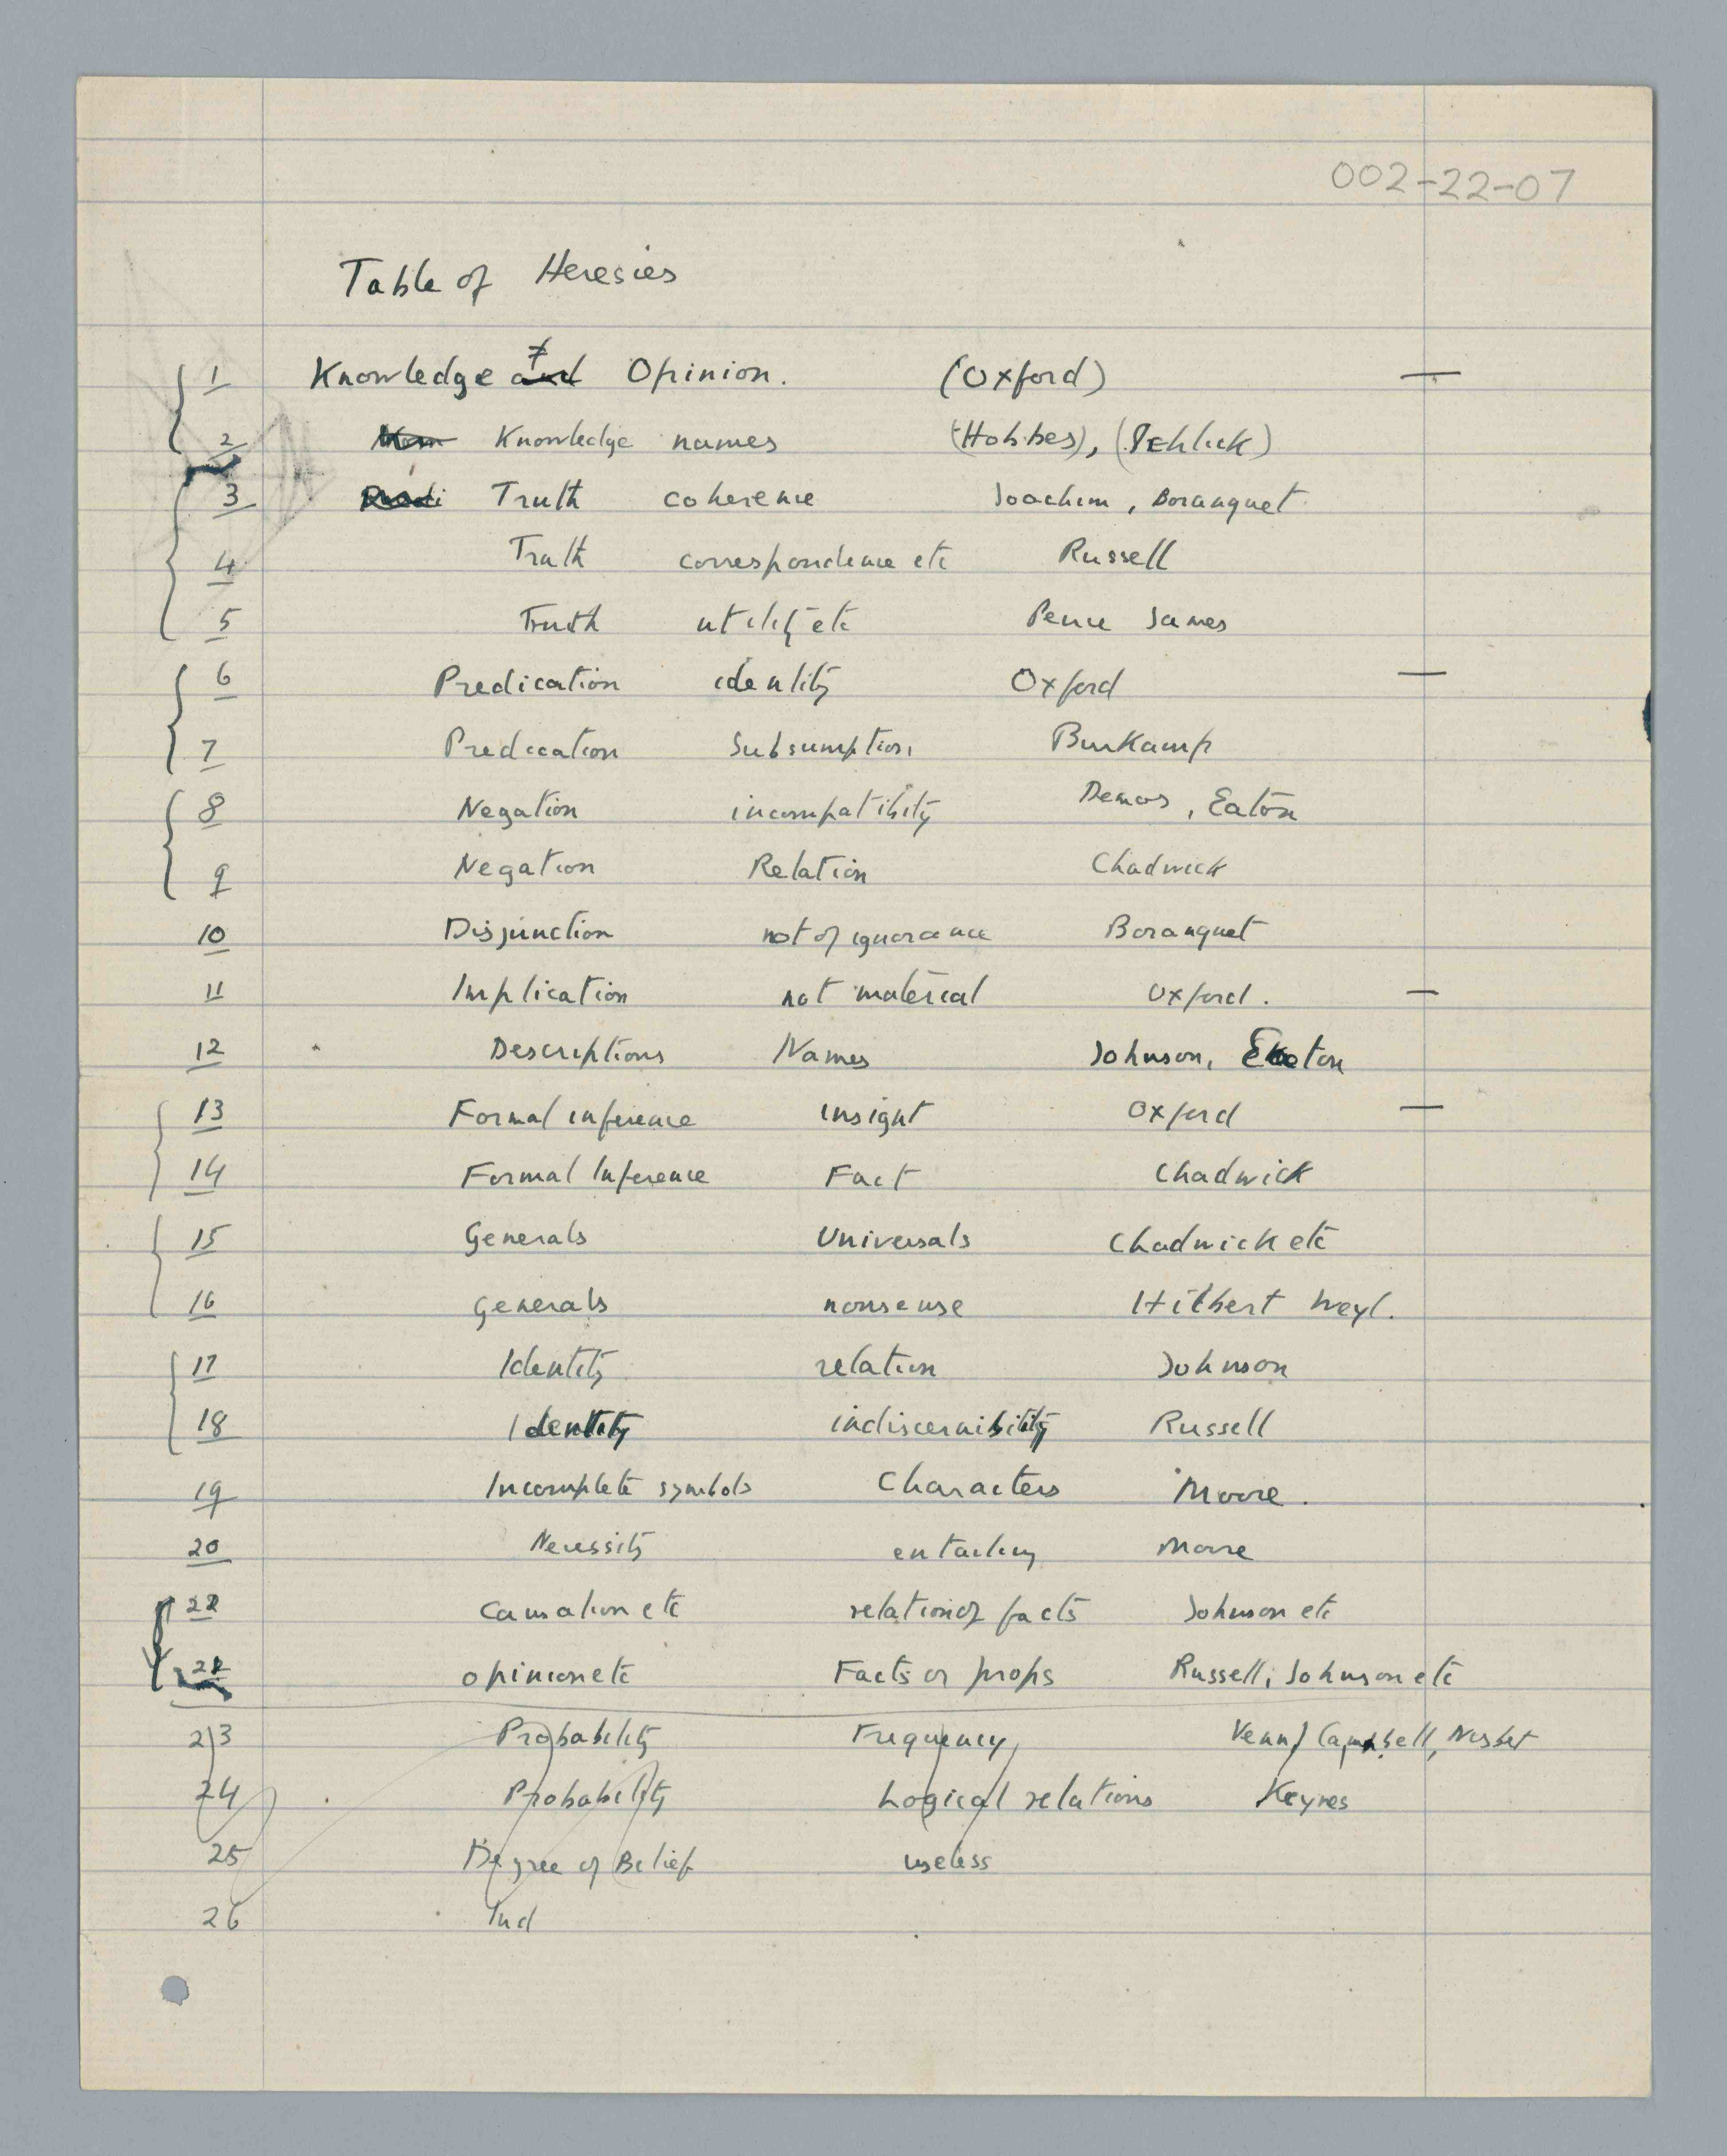 002-22-07
Table of Heresies
1 Knowledge ≠ Opinion. (Oxford)—
2 Knowledge names (Hobbes), (Schlick)
3 Truth coherence Joachim, Bosanquet
4 Truth correspondence etc Russell
5 Truth utility etc Peirce James
6 Predication identity Oxford —
7 Predication Subsumption Burkamp
8 Negation incompatibility Demos, Eaton
9 Negation Relation Chadwick
10 Disjunction not of ignorance Bosanquet
11 Implication not material Oxford. —
12 Descriptions Names Johnson, Eaton
13 Formal inference insight Oxford —
14 Formal Inference Fact Chadwick
15 Generals Universals Chadwick etc
16 Generals nonsense Hilbert Weyl.
17 Identity relation Johnson
18 Identity indiscernibility Russell
19 Incomplete symbols Characters Moore.
20 Necessity entailing Moore
22 Causation etc relation of facts Johnson etc
21 opinion etc Facts or props Russell, Johnson etc
23 Probability Frequency Venn, Campbell, Nisbet
24 Probability Logical relations Keynes
25 Degree of Belief useless
26 Ind